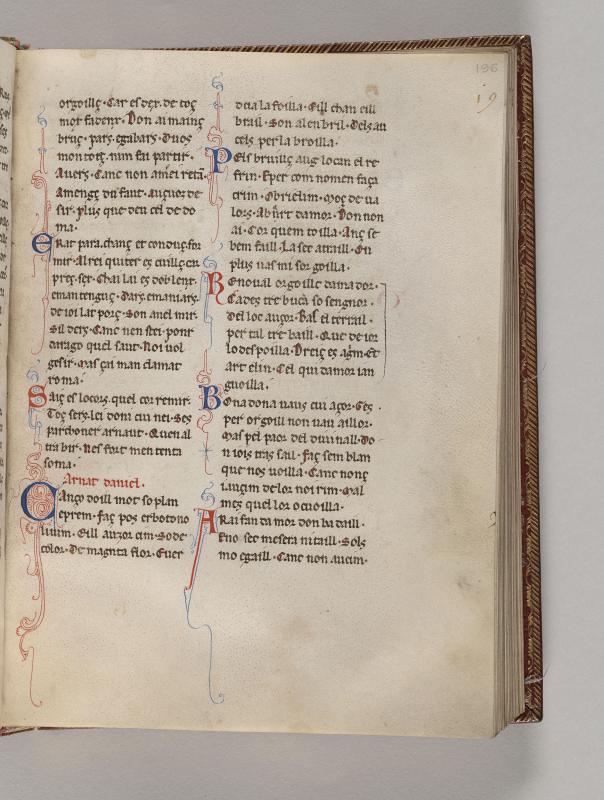 196
19
orgoillç · Car es dex · de toç
mot fadenz · Don ai mainç
bruç · parç egabarç · Duoç
mon toiç · num fai partir ·
Auers · Canc non amei reta
Amengç du faut · auçuoz de
fir · pluç que deu cel de do
ma ·
ERat para · chanç et conduç · for
mir · Al rei quiter es cuillç en
preç · ser · Chai lui es doblenz ·
enan tenguç · Darç emaniarç
de ioi lat porç · Son anel mir ·
Sil derç · Canc nen stei · ponz
quel saut · Noi uol
gesir · Mas çai man clamat
roma ·
Saiç es locors · quel cor remir ·
Toç serç · lei doni cui nei · Ses
par boner arnauz · Quen al
tra bir · nes fort men tenta
soma ·
Arnat daniel ·
CAnço doill mot so plan
eprem · Faç pos erboto no
li uim · Eill auzor cim · So de
color · De magnta flor · Euer
deia la foilla · Eill chan eill
brail · Son al enbril · Dels au
cels per la broilla ·
PEls bruillç aug lo can el re
frin · Eper com no men faça
crim · Obri elim · Moç de ua
lorç · Ab art damor · Don non
ai · Cor quem toilla · Anç se
bem faill · La sec atraill · On
plus uas mi sor goilla ·
REno ual orgoillç damador ·
Cades tre buca so sengnor ·
del loc auçor · Bas el terrail ·
per tal tre baill · Que de ioi
lo despoilla · Dreiç es agrn · Et
art elin · Cel qui damor ian
guoilla ·
BOna dona uaus cui açor · Ges
per orgoill non uau aillor ·
Mas pel paor del diuinall · Do
n iois tras sail · Faç sem blan
que nos uoilla · Canc nonç
iauçim de lor noi rim · Mal
meç quel lor ocuoilla ·
ARai fan da mor don ba daill ·
Eno sec mesera ni taill · Sols
mo egaill · Canc non auem ·